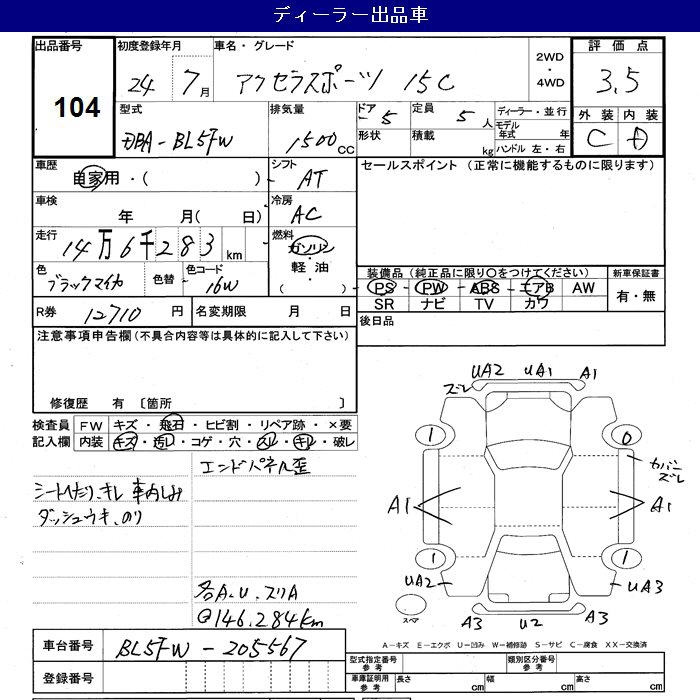 ディーラー出品車
出品番号 初度登録年月 車名・グレード 2WD・4WD 評価点
104 24 7月 アクセラスポーツ 15C 3.5
型式 排気量 ドア 5 定員 5人 ディーラー・並行 外装 内装
DBA-BL5FW 1500CC 形状 積載 kg モデル年式 年 C D
ハンドル 左・右
車歴 自家用・( ) シフト AT セールスポイント (正常に機能するものに限ります)
車検 年 月( 日) 冷房 AC
走行 14万6千283km 燃料 ガソリン・軽・油 ( )
色 ブラックマイカ 色替 色コード 16W
装備品 (純正品に限り○をつけてください) 新車保証書
PS PW ABS エアB AW 有・無
SR ナビ TV カワ
R券 12710円 名変期限 月 日 後日品
注意事項申告欄 (不具合内容等は具体的に記入して下さい)
修復歴 有 〔箇所 〕
検査員 FW キズ・飛石・ヒビ割・リペア跡・×要
記入欄 内装 キズ・汚レ・コゲ・穴・スレ・キレ・破レ
エンドパネル歪
シートへたり、キレ 車内しみ
ダッシュウキ、のり
各A.U.スリA
@146.284km
UA2 UA1 A1
ズレ
1 0
カバーズレ
A1 A1
1 1
UA2 UA3
スペア
A3 U2 A3
A-キズ E-エクボ U-凹み W-補修跡 S-サビ C-腐食 XX-交換済
車台番号 BL5FW-205567
登録番号
型式指定番号 参考 類別区分番号 参考
車庫証明用 参考 長さ cm 幅 cm 高さ cm